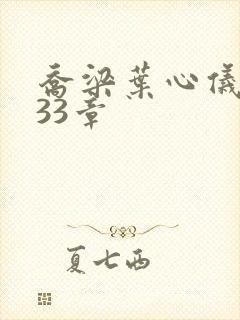 乔梁葉心儀
33章
夏七西